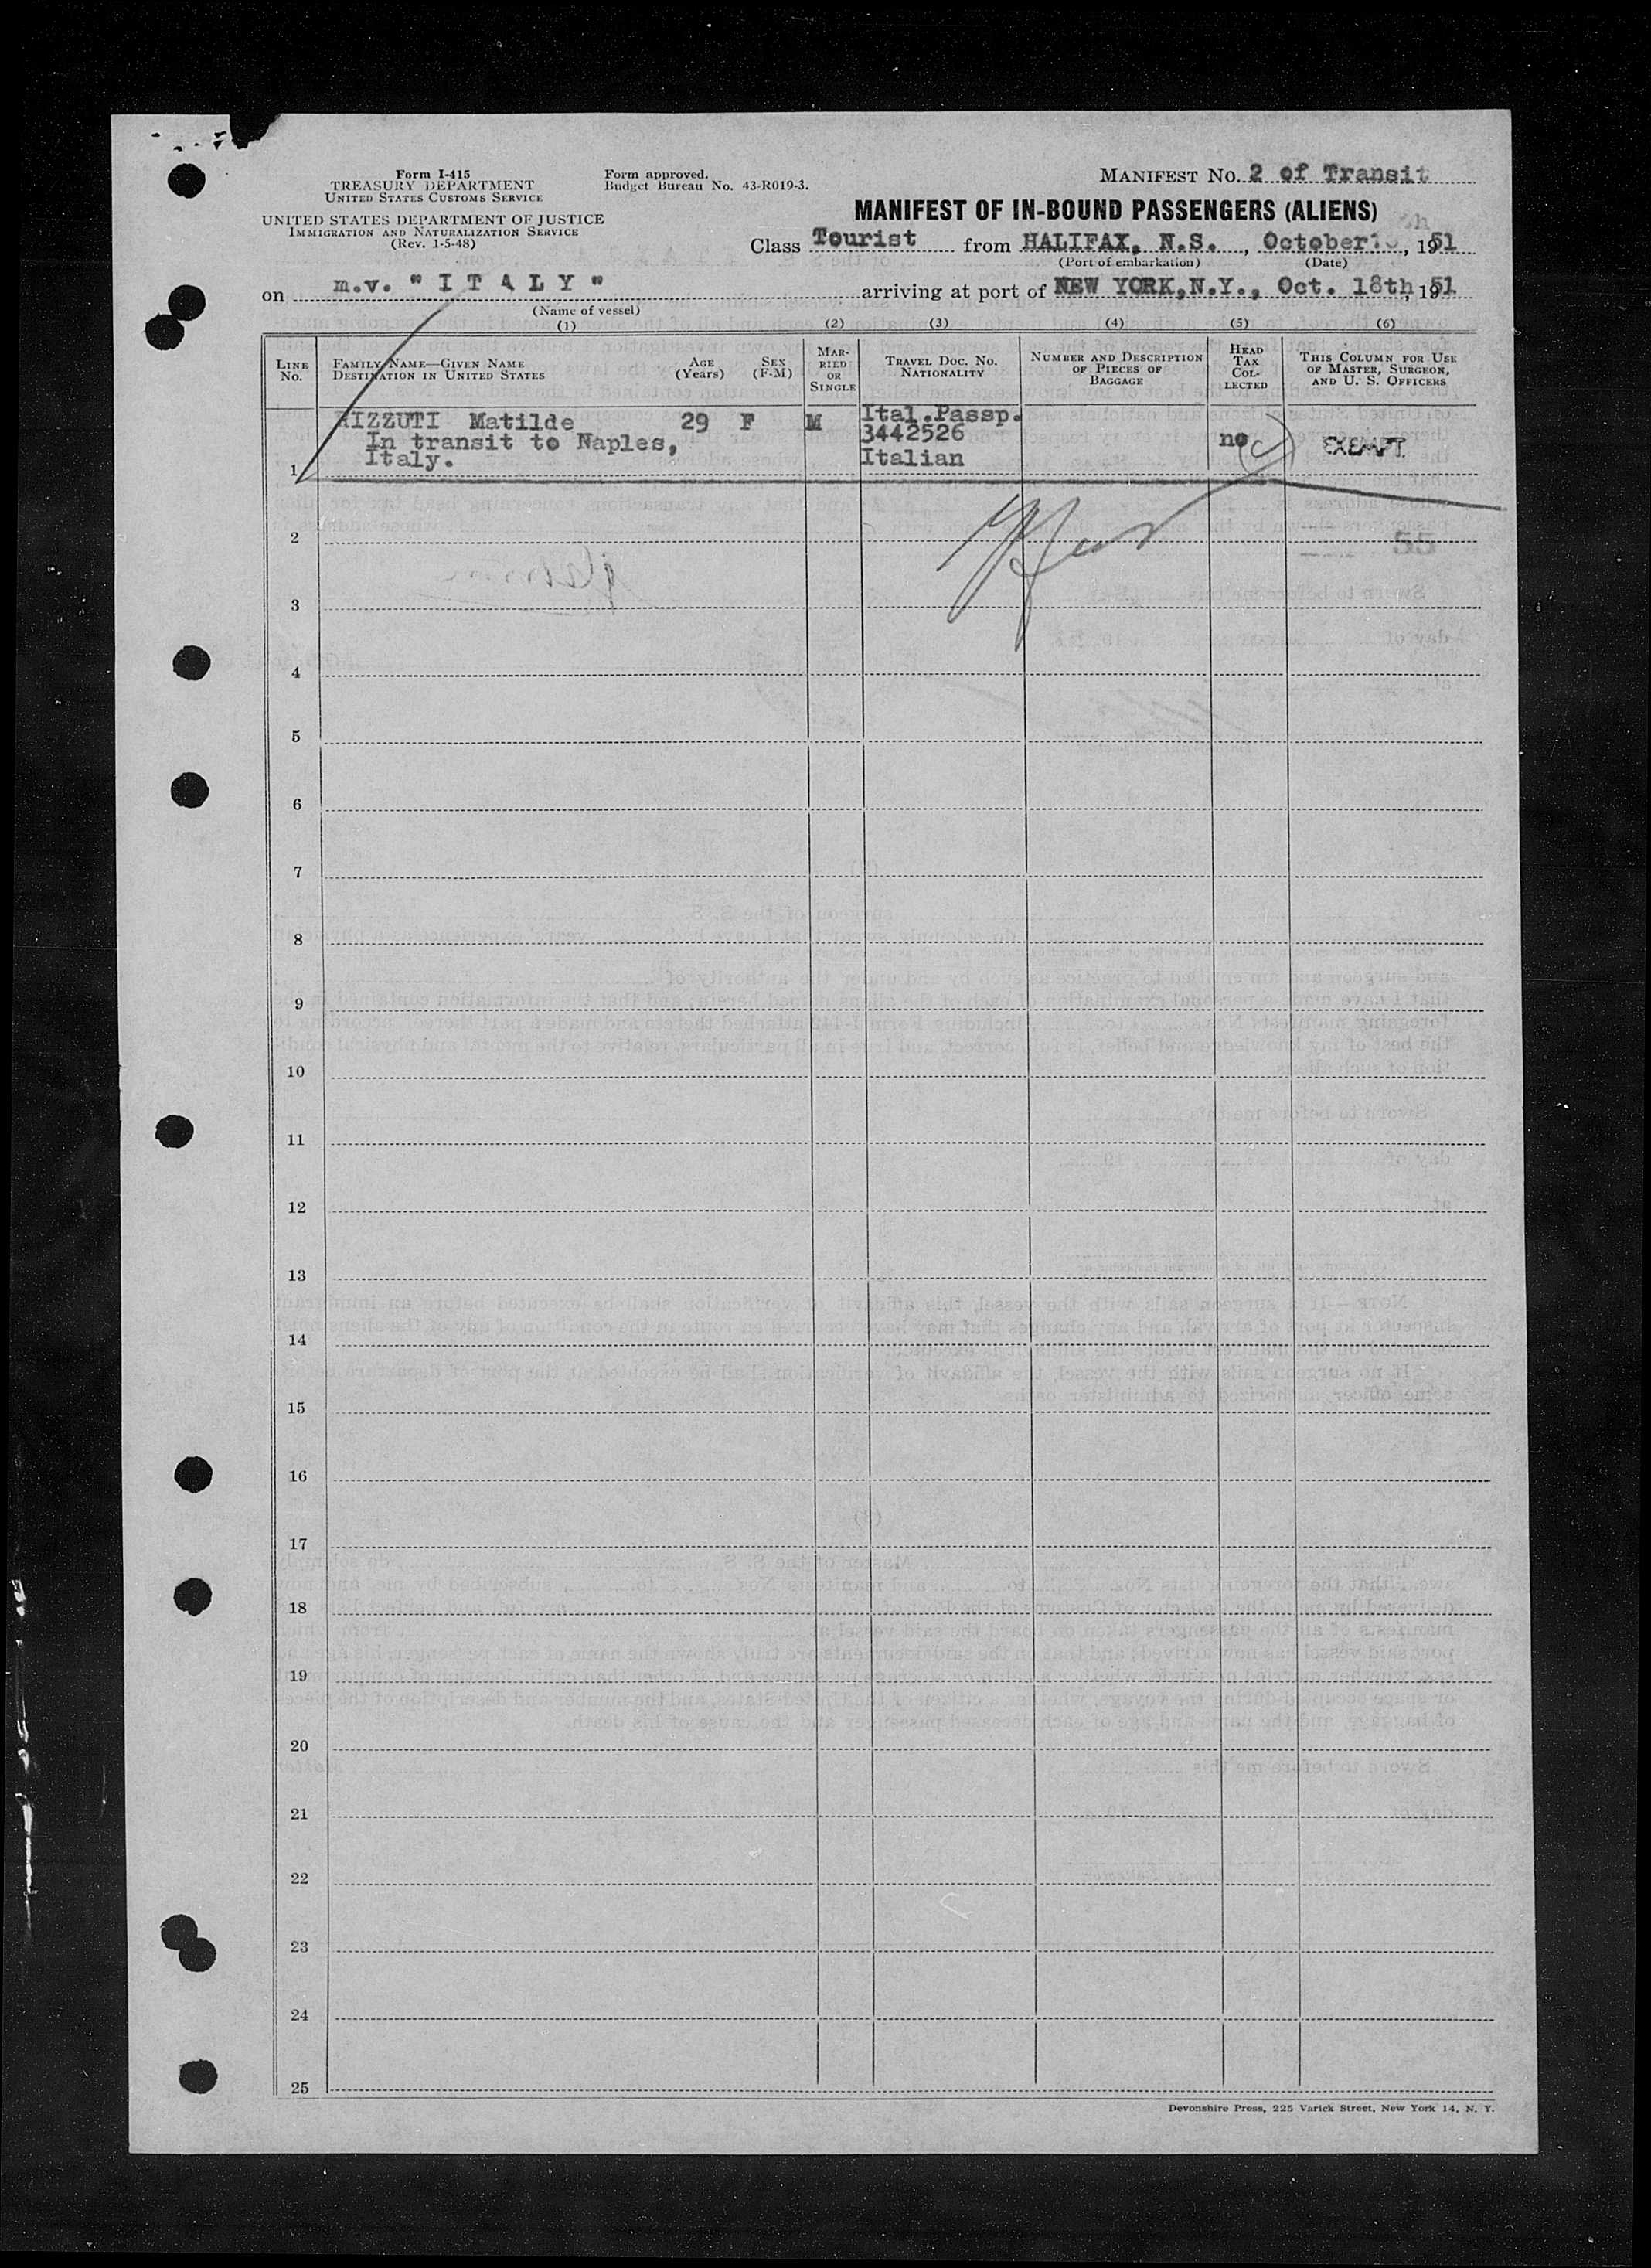 Form I-415
TREASURY DEPARTMENT
UNITED STATES CUSTOMS SERVICE
UNITED STATES DEPARTMENT OF JUSTICE
IMMIGRATION AND NATURALIZATION SERVICE
(Rev. 1-5-48)
Form approved.
Budget Bureau No. 43-R019-3.
MANIFEST NO. 2 of Transit
MANIFEST OF IN-BOUND PASSENGERS (ALIENS)
Class Tourist from HALIFAX, N.S., October, 1951
(Port of embarkation) (Date)
on m.v. "ITALY" arriving at port of NEW YORK, N.Y., Oct. 18th, 1951
(Name of vessel)
(1) (2) (3) (4) (5) (6)
LINE NO.
FAMILY NAME—GIVEN NAME
DESTINATION IN UNITED STATES
AGE (YEARS)
SEX (F-M)
MARRIED OR SINGLE
TRAVEL DOC. NO.
NATIONALITY
NUMBER AND DESCRIPTION
OF PIECES OF
BAGGAGE
HEAD TAX COLLECTED
THIS COLUMN FOR USE
OF MASTER, SURGEON,
AND U. S. OFFICERS
RIZZUTI Matilde 29 F M Ital.Passp.
In transit to Naples, 3442526 no EXEMPT
1 Italy. Italian
2
55
3
4
5
6
7
8
9
10
11
12
13
14
15
16
17
18
19
20
21
22
23
24
25
Devonshire Press, 225 Varick Street, New York 14, N. Y.